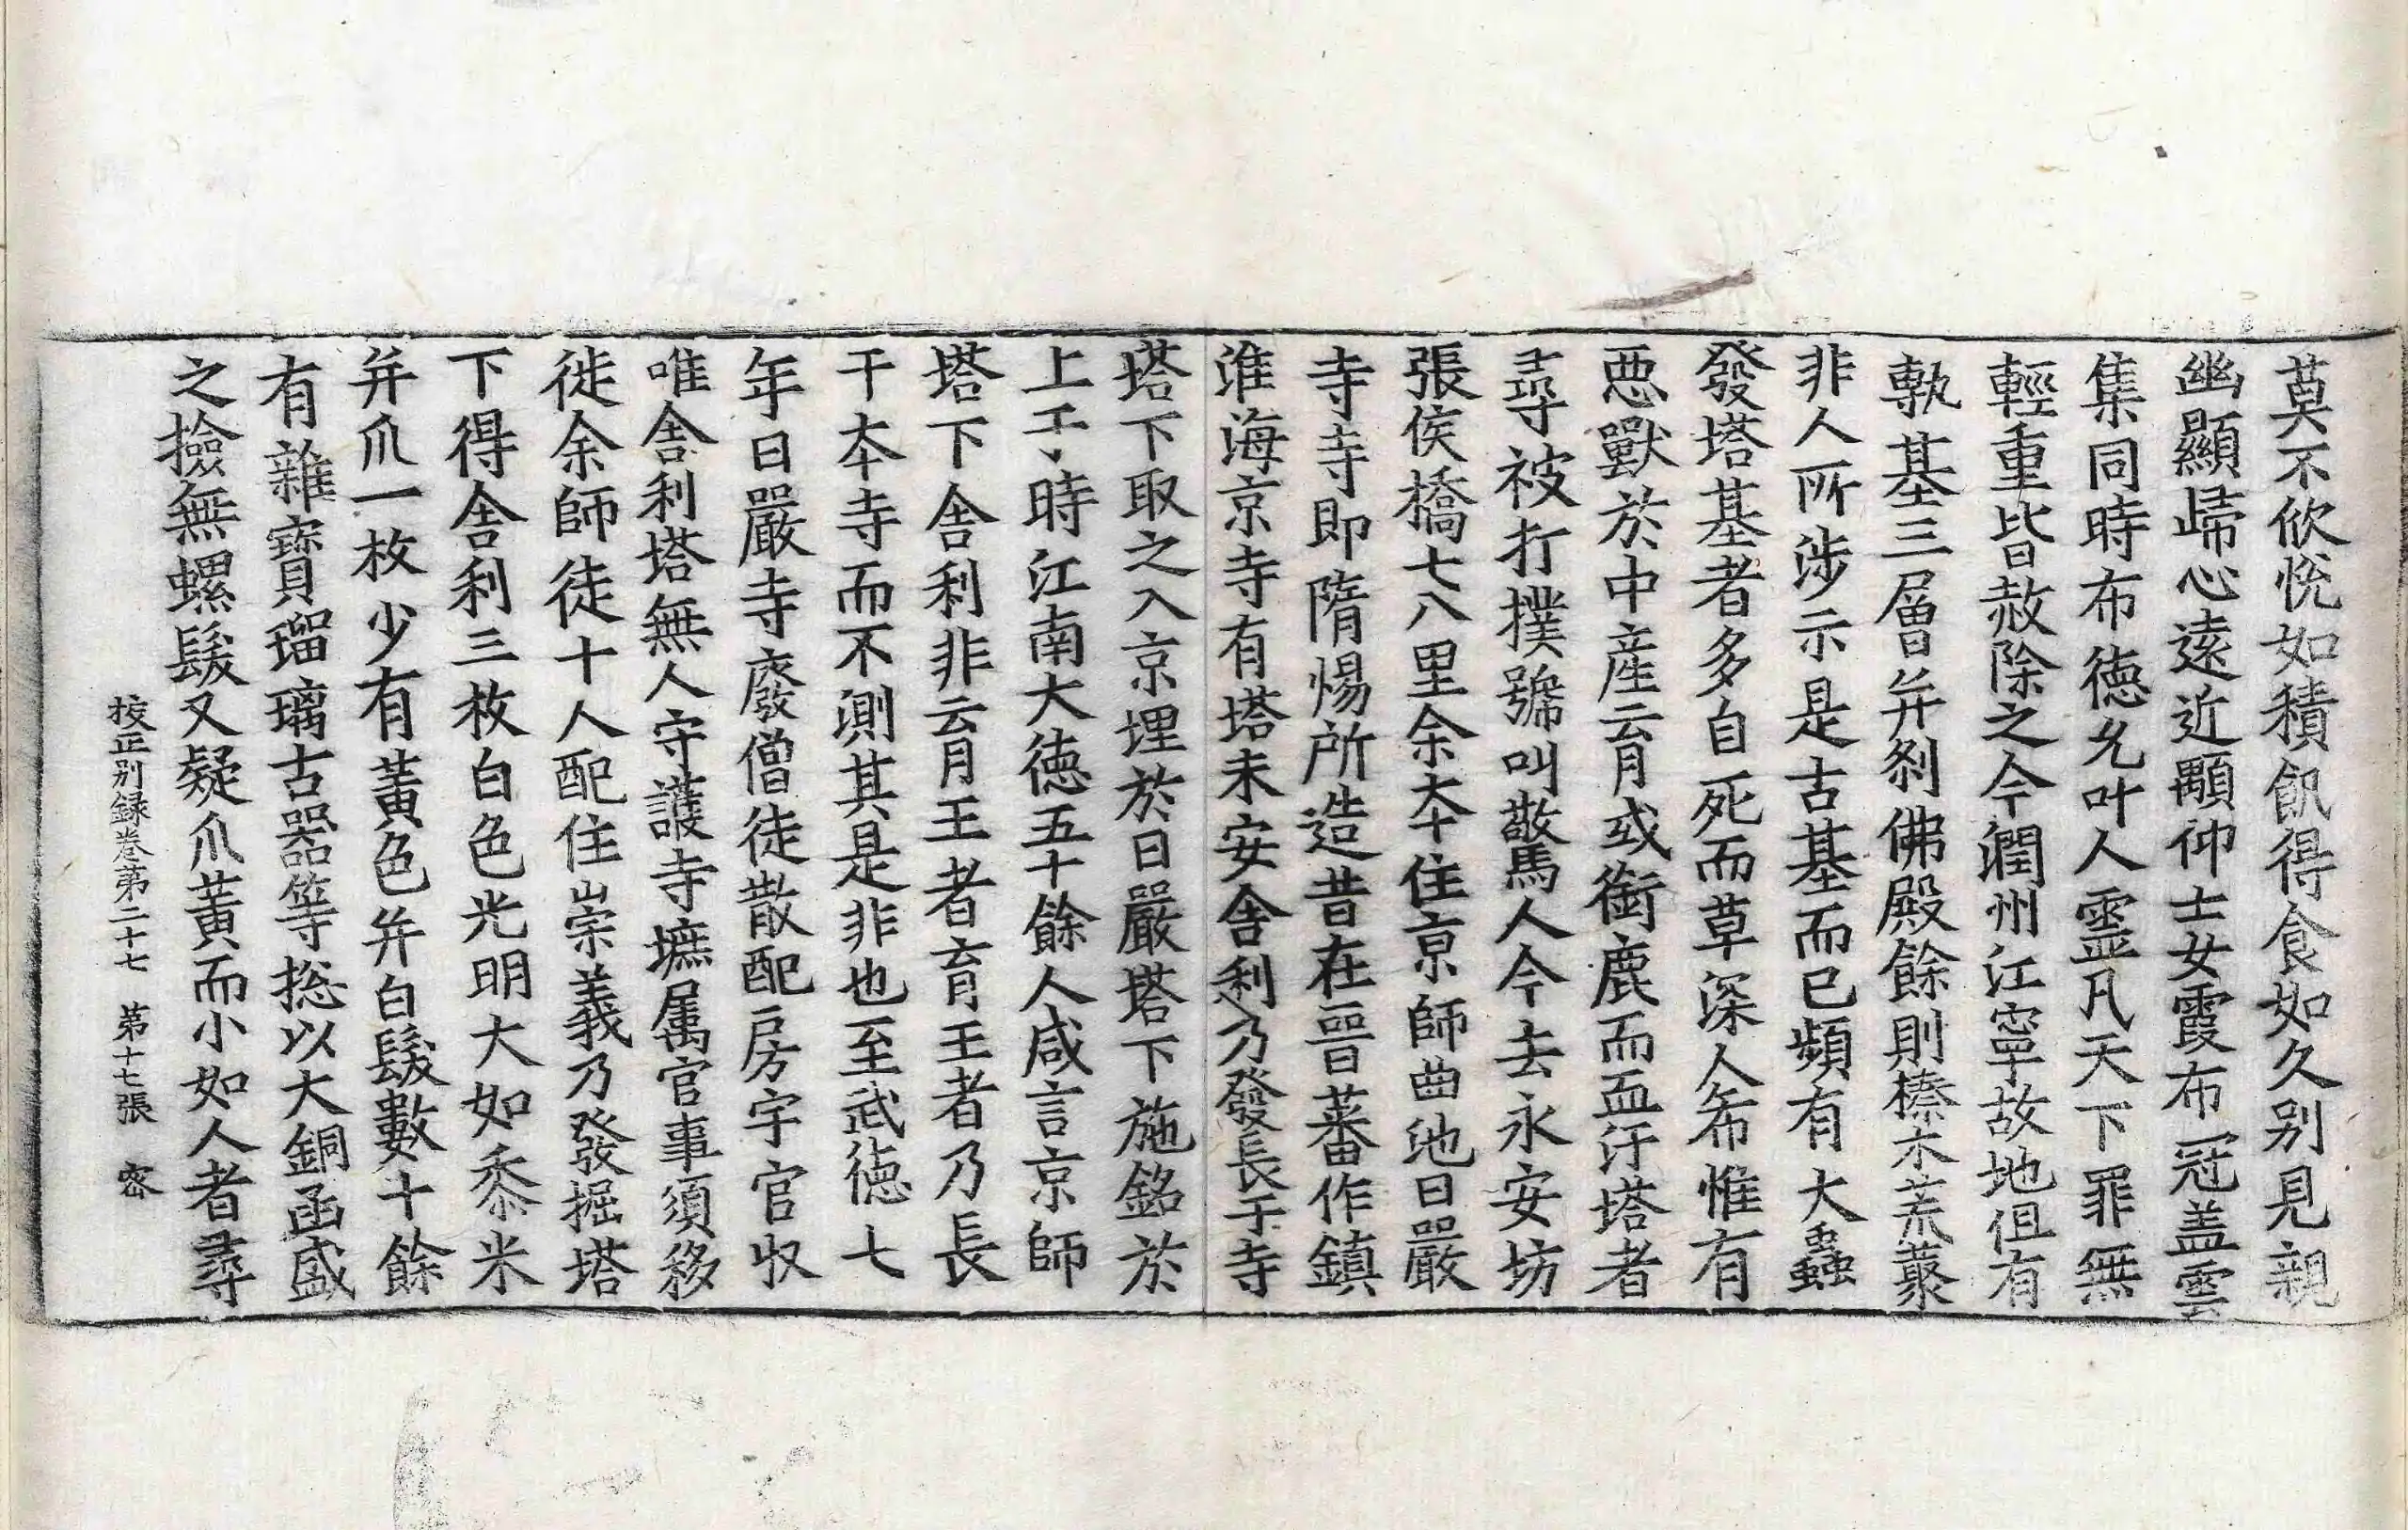 莫不欣悅如積飢得食如久別見親
幽顯歸心遠近顒仰士女霞布冠盖雲
集同時布德允叶人靈凡天下罪無
輕重皆赦除之今潤州江寧故地伹有
塼基三層并刹佛殿餘則榛木荒藂
非人所涉示是古基而已頻有大蟲
發塔基者多自死而草深人希惟有
惡獸於中産育或銜鹿而血汙塔者
尋被打撲號叫驚人今去永安坊
張侯橋七八里余本住京師曲池日嚴
寺寺即隋煬所造昔在晉蕃作鎮
淮海京寺有塔未安舍利乃發長干寺
塔下取之入京埋於日嚴塔下施銘於
上于時江南大德五十餘人咸言京師
塔下舍利非育王者育王者乃長
干本寺而不測其是非也至武德七
年日嚴寺廢僧徒散配房宇官収
唯舍利塔無人守護寺墌属官事須移
徙余師徒十人配住崇義乃發掘塔
下得舍利三枚白色光明大如黍米
并爪一枚少有黃色并白髮數十餘
有雜寶瑠璃古器等捴以大銅函盛
之撿無螺髮又疑爪黃而小如人者尋
挍正別録卷第二十七　第十七張　宻